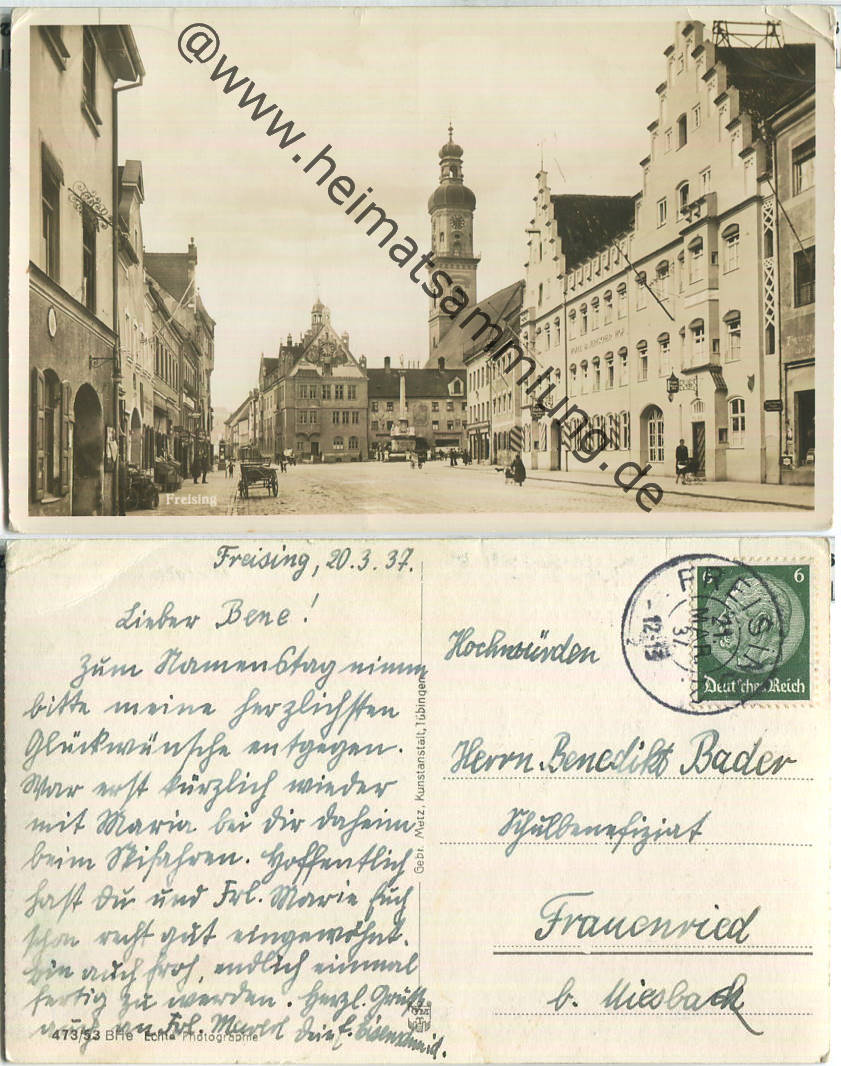 @www.heimatsammlung.de
Freising
Freising, 20.3.37.
Lieber Bene!
Zum Namenstag nimm
bitte meine herzlichsten
Glückwünsche entgegen.
War erst kürzlich wieder
mit Maria bei Dir daheim
beim Skifahren. Hoffentlich
hast Du und Frl. Marie Euch
schon recht gut eingewöhnt.
Bin auch froh, endlich einmal
fertig zu werden. Herzl. Grüße
auch an Frl. Dein
473/53 BHe Echte Photographie
Gebr. Metz, Kunstanstalt, Tübingen
FREISING
21
MAR
37
12-13
6 6
Deutsches Reich
Hochwürden
Herrn Benedikt Bader
Schulbenefiziat
Frauenried
b. Miesbach